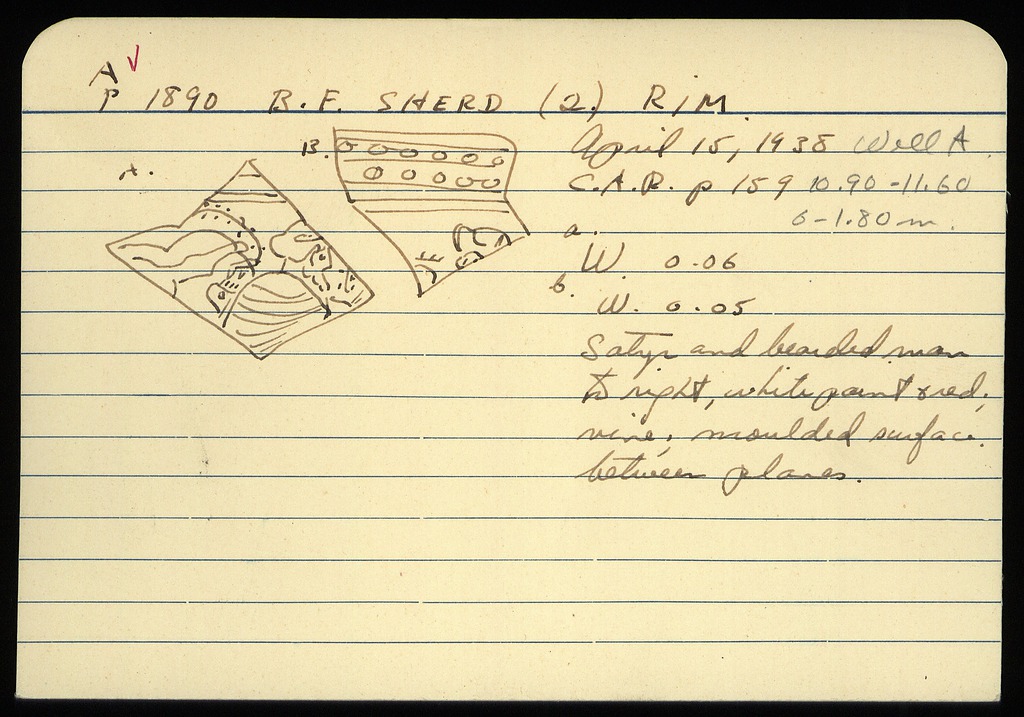 A
P 1890 B.F. SHERD (2) RIM
A.
B.
April 15, 1938 Well A.
C.A.R. p 159 10.90-11.60
6-1.80 m.
a.
W. 0.06
b.
W. 0.05
Satyr and bearded man
to right, white paint & red,
vine, moulded surface
between planes.